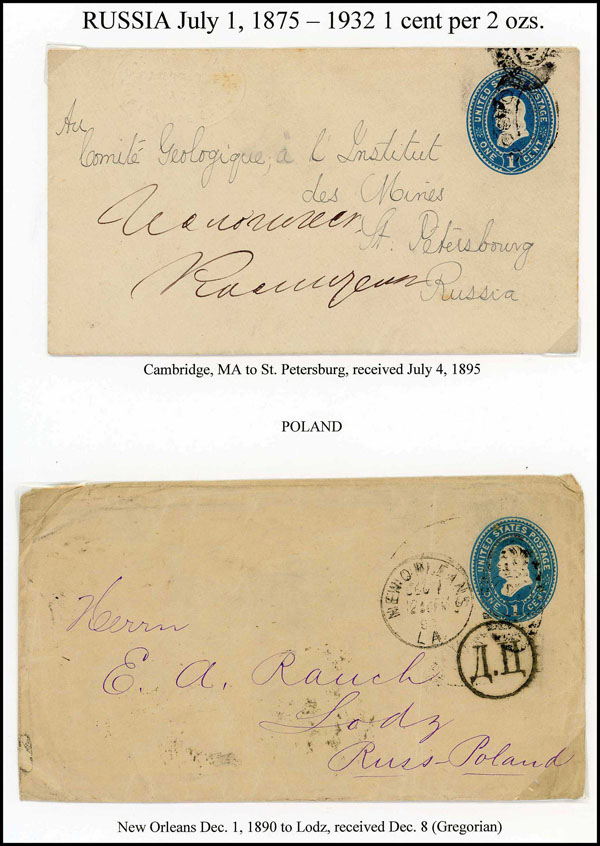 RUSSIA July 1, 1875 – 1932 1 cent per 2 ozs.
UNITED STATES POSTAGE
ONE 1 CENT
Au
Comité Geologique, à l'Institut
des Mines
St. Petersbourg
Russia
Cambridge, MA to St. Petersburg, received July 4, 1895
POLAND
UNITED STATES POSTAGE
ONE 1 CENT
NEW ORLEANS
DEC 1
LA
Д.Ц
Herrn
E. A. Rauch
Lodz
Russ-Poland
New Orleans Dec. 1, 1890 to Lodz, received Dec. 8 (Gregorian)